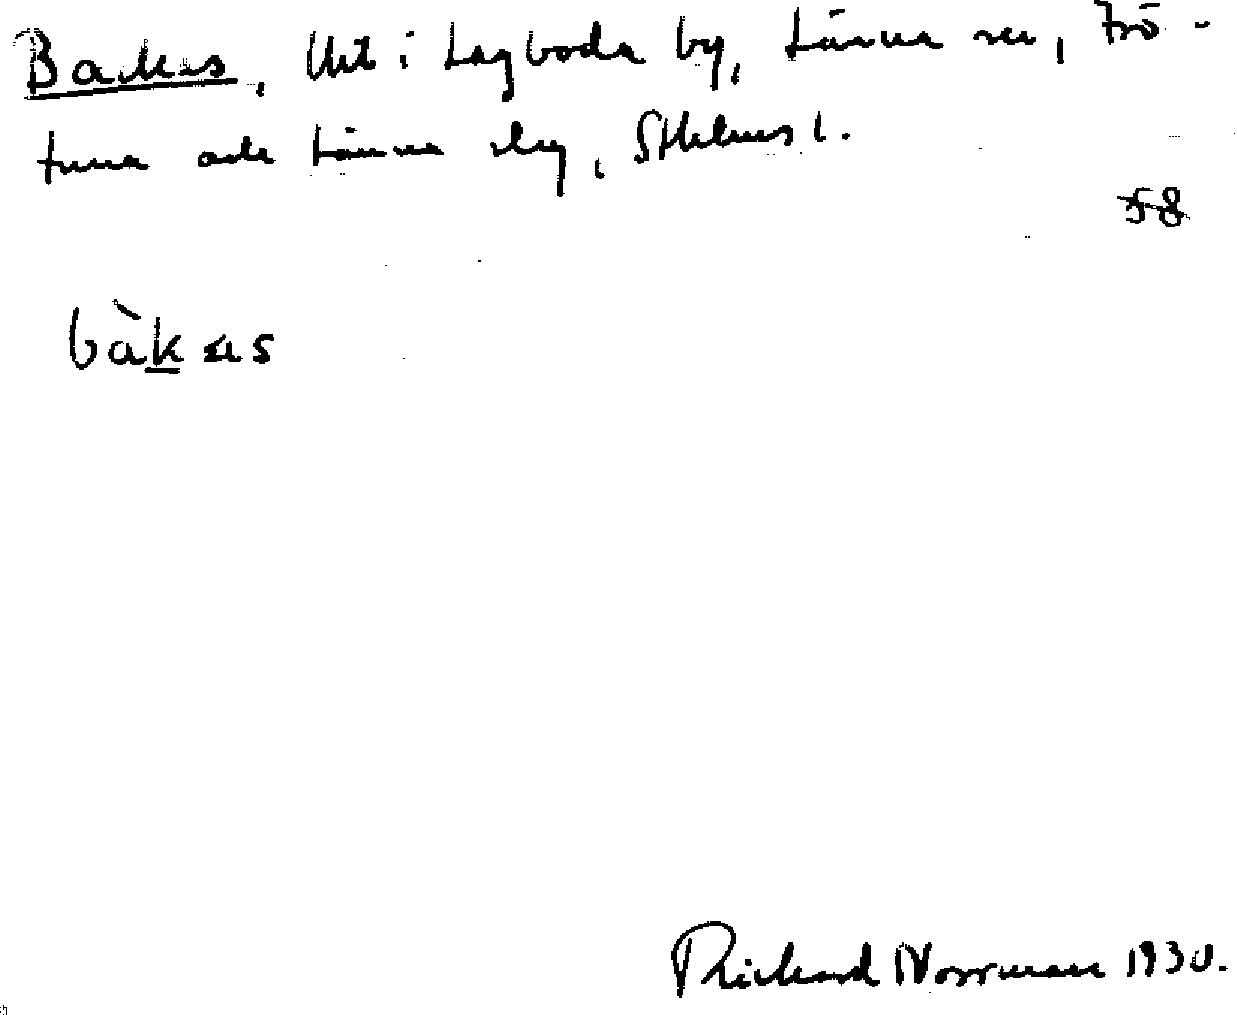 Backes, Utt i Lagboda by, Länna sn, Frö-
tuna och Länna slg, Sthlms l.
58
bàkas
Rickard Norrman 1930.